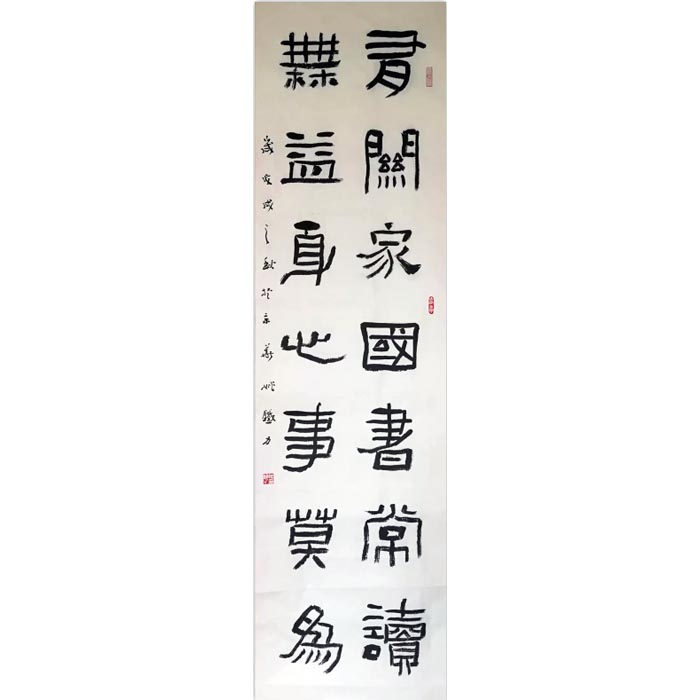 有關家國書常讀
無益身心事莫為
歲在戊戌之秋於京華 鐵力